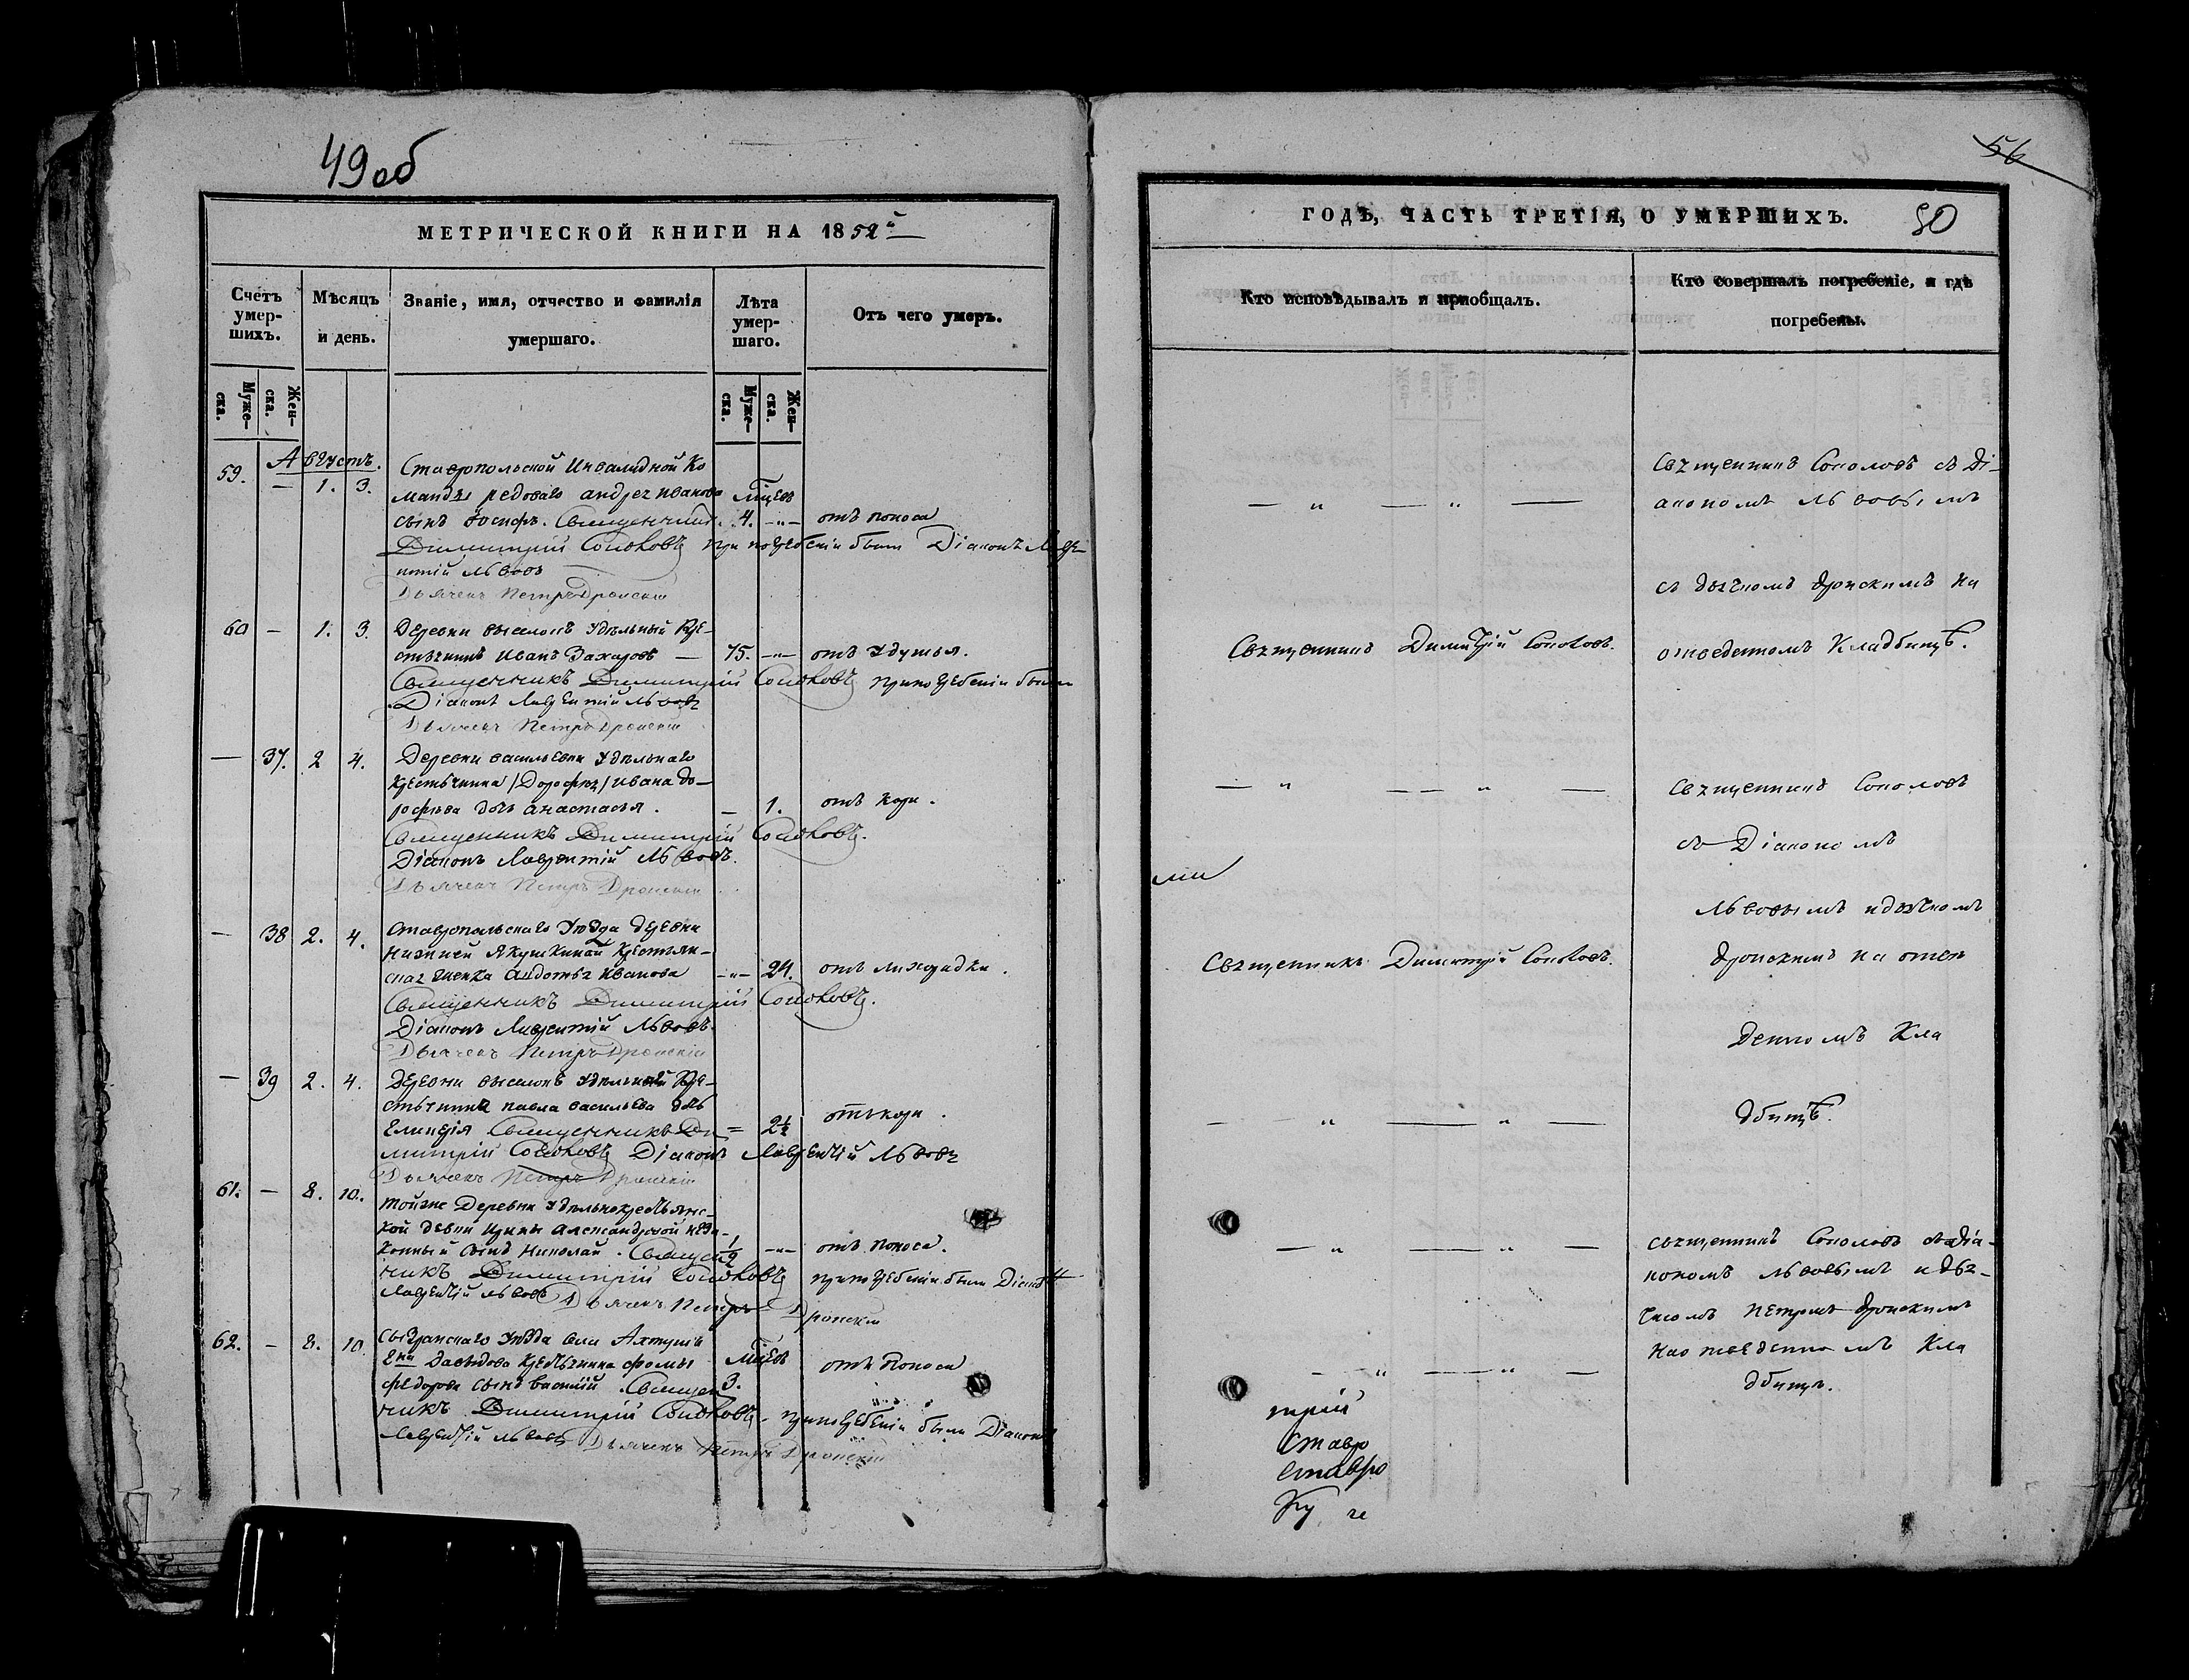 49 об
МЕТРИЧЕСКОЙ КНИГИ НА 1852й
Счетъ умер-шихъ.
Мѣсяцъ и день.
Званіе, имя, отчество и фамилія умершаго.
Лѣта умер-шаго.
Отъ чего умеръ.
Муже-ска.
Жен-ска.
Муже-ска.
Жен-ска.
Августъ.
59. — 1. 3. Ставропольской Инвалидной Ко
манды рядоваго андрея иванова мѣцевъ
сынъ Іосифъ. Священникъ 4. -"- отъ поноса
Димитрій Соколовъ при погребеніи были Діаконъ Лавре-
нтій Львовъ
Дьячекъ Петръ Дронскій
60 — 1. 3. Деревни выселокъ Удѣльный Кре-
стьянинъ Иванъ Захаровъ — 75. -"- отъ Удушья.
Священникъ Димитрій Соколовъ при погребеніи были
Діаконъ Лаврентій Львовъ
Дьячекъ Петръ Дронскій
— 37. 2 4. Деревни васильевки Удѣльнаго
Крестьянина /Дорофея/ ивана до-
рофѣева дочь анастасья. — 1. отъ Кори.
Священникъ Димитрій Соколовъ.
Діаконъ Лаврентій Львовъ.
Дьячекъ Петръ Дронскій
— 38 2. 4. Ставропольскаго Уѣзда деревни
Нижней Якушкиной Крестьян-
ская женка Авдотья Иванова -"- 24. отъ лихорадки.
Священникъ Димитрій Соколовъ.
Діаконъ Лаврентій Львовъ.
Дьячекъ Петръ Дронскій
— 39 2. 4. Деревни выселокъ Удѣльнаго Кре-
стьянина павла васильева дочь
Гликерія Священникъ Ди = 2½ отъ кори.
митрій Соколовъ Діаконъ Лаврентій Львовъ
Дьячекъ Петръ Дронскій
61. — 8. 10. Тойже Деревни Удѣльнокрестьянс-
кой девки Ирины Александровой неза-
конный сынъ Николай. Священ ½ -"- отъ поноса.
никъ Димитрій Соколовъ при погребеніи были Діаконъ
Лаврентій Львовъ Дьячекъ Петръ Дронскій
62. — 8. 10. Сызранскаго Уѣзда села Ахтушъ
Давыдова Крестьянина фомы мѣцевъ отъ Поноса
федорова сынъ василій. Священ 3.
никъ Димитрій Соколовъ при погребеніи были Діаконъ
Лаврентій Львовъ Дьячекъ Петръ Дронскій
56
50
ГОДЪ, ЧАСТЬ ТРЕТІЯ, О УМЕРШИХЪ.
Кто исповѣдывалъ и пріобщалъ.
Кто совершалъ погребеніе, и гдѣ погребены.
Священникъ Соколовъ съ Ді-
— " — " — акономъ Львовымъ
съ дьячкомъ дронскимъ на
Священникъ Димитрій Соколовъ. отведенномъ Кладбищѣ.
— " — — " — Священникъ Соколовъ
съ Діакономъ
ми
Львовымъ и дьячкомъ
Священникъ Димитрій Соколовъ. дронскимъ на отве
денномъ Кла
— " — " — дбищѣ.
— " — " — священникъ Соколовъ съ діа-
кономъ львовымъ и дья-
чкомъ петромъ дронскимъ
на отведенномъ Кла
— " — " — дбищѣ.
трій
Ставро
ставро